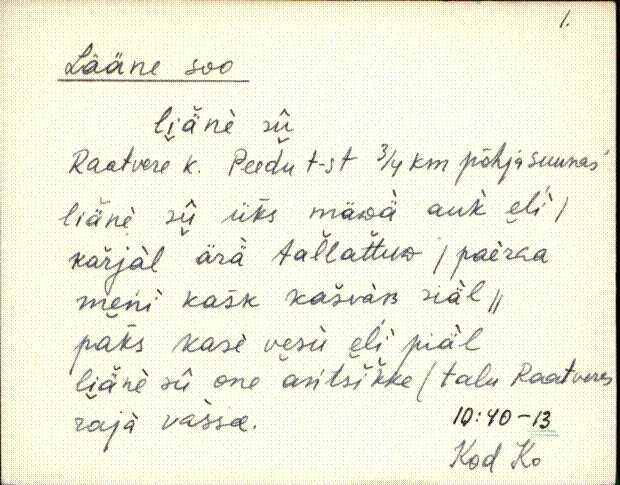 1.
Lääne soo
liä̆nè sû̬
Raatvere k. Peedu t-st 3/4 km põhjasuunas
liä̆nè sû̬ üks mäwä auk eli /
karjàl ärä tallattuw / paèraa
meni kašk kašvàʙ siäl //
paks kasè vesù eli piäl
liä̆nè sû one
(talu Raatveres
rajà vàssa.
10:40-13
Kod Ko